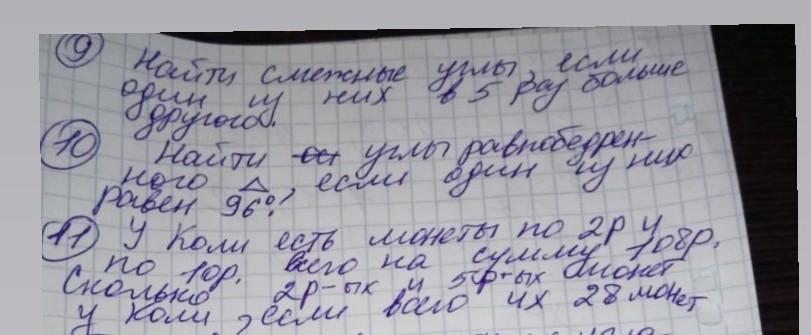 9 Найти смежные углы, если
один из них в 5 раз больше
другого.
10 Найти углы равнобедрен-
ного △, если один из них
равен 96°!
11 У Коли есть монеты по 2р и
по 10р. всего на сумму 108р.
Сколько 2р-ых и 5р-ых монет
у Коли, если всего их 28 монет